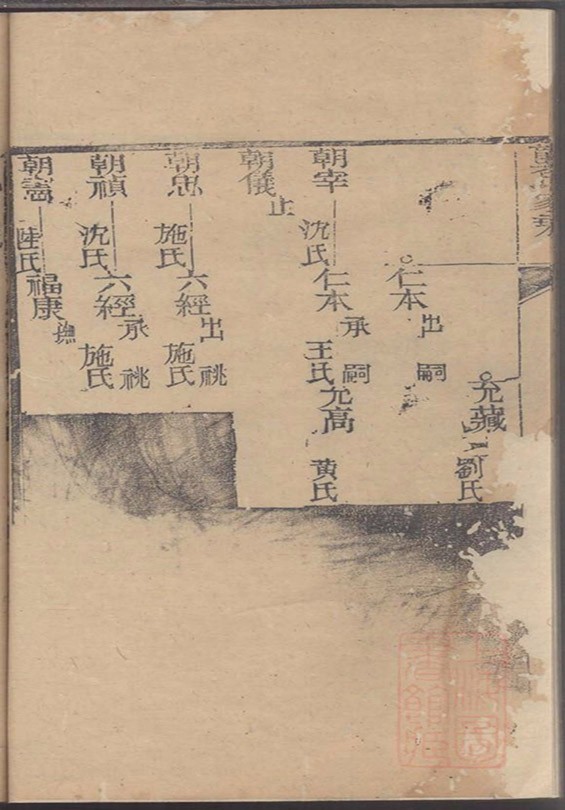 允藏 劉氏
仁本 出嗣
朝宰 沈氏 仁本 承嗣 王氏 允高 黄氏
朝儀 止
朝忠 施氏 六經 出祧 施氏
朝禎 沈氏 六經 承祧 施氏
朝憲 陸氏 福康 撫